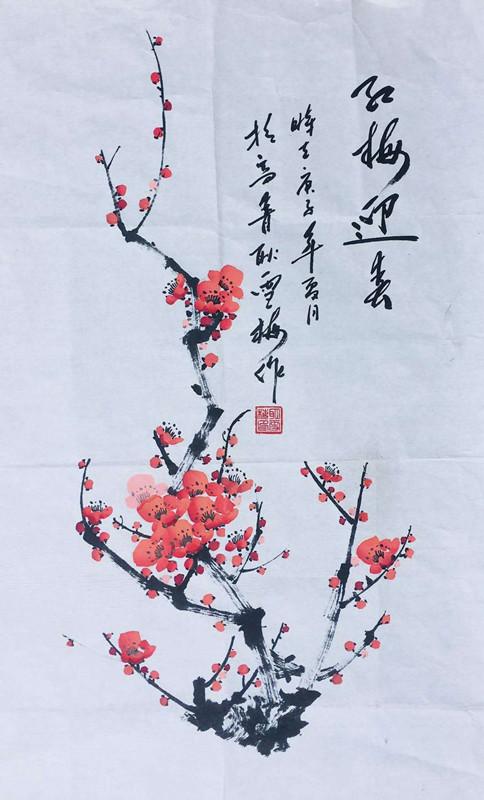 红梅迎春
时在庚子年夏月
于高青耿雪梅作